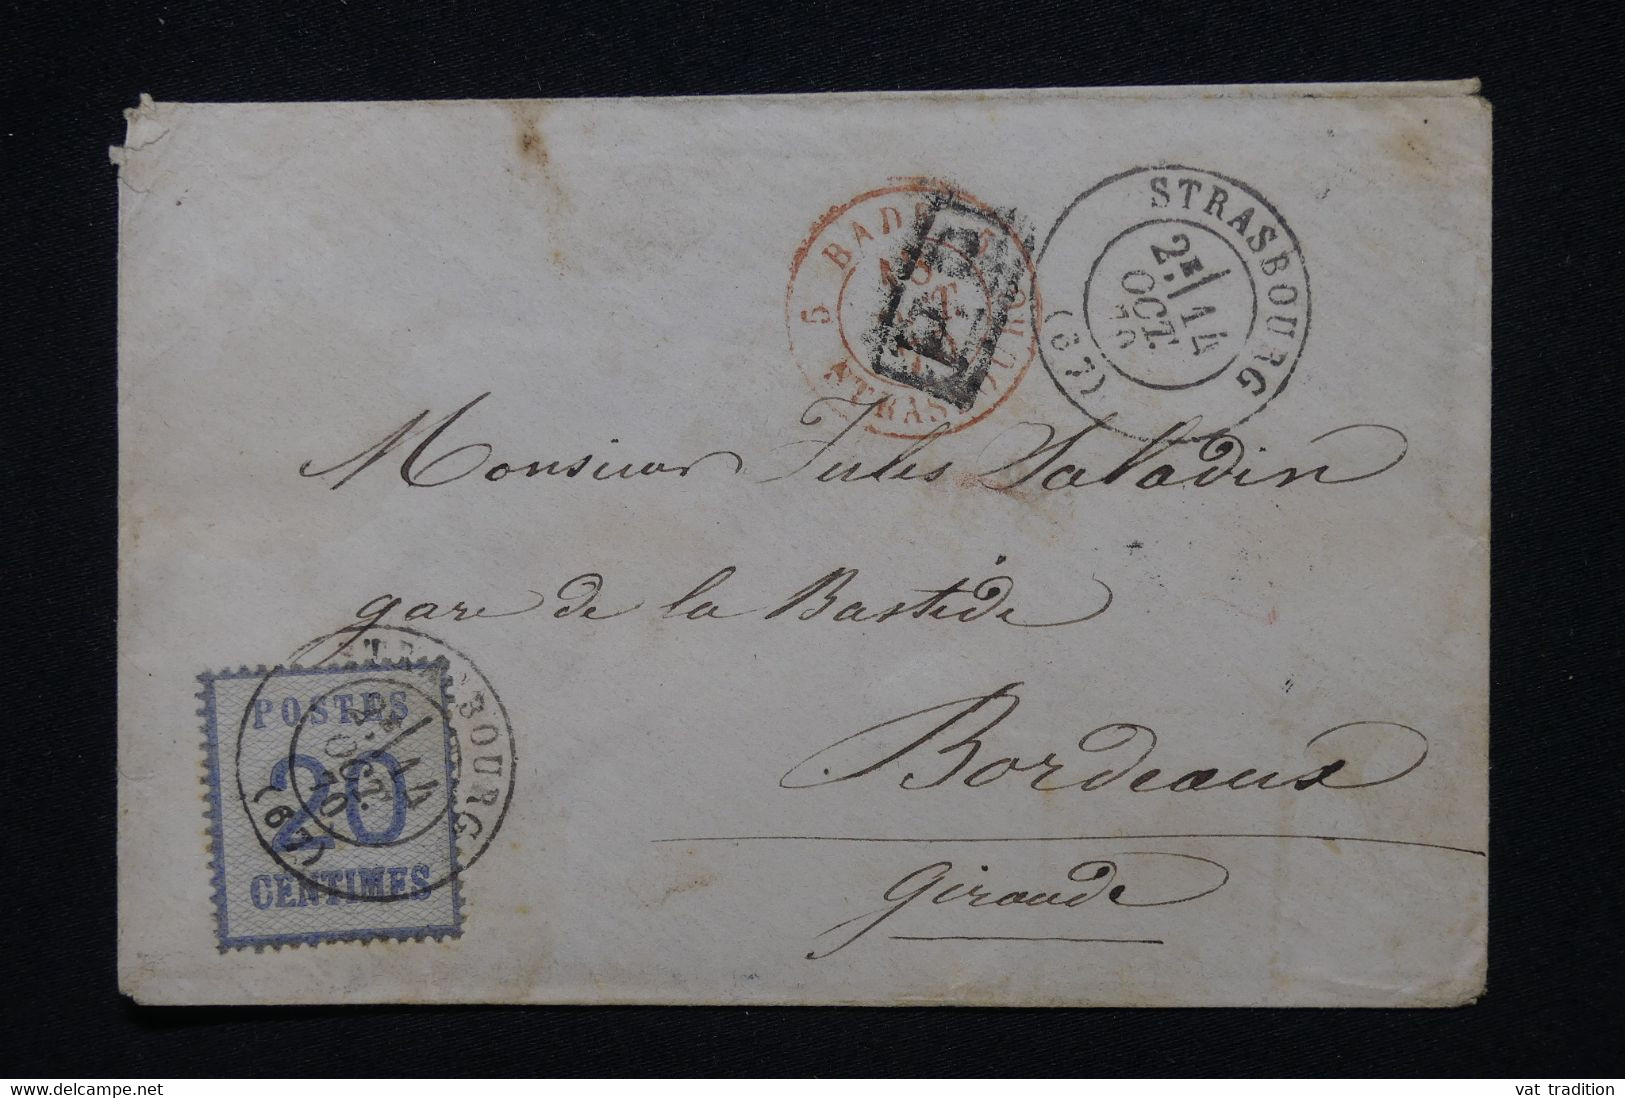 STRASBOURG
2E/14
OCT.
70
(67)
5 BADE 5
OCT.
STRASBOURG
P.D.
Monsieur Jules Salladin
gare de la Bastide
Bordeaux
Gironde
STRASBOURG
2E/14
OCT.
70
(67)
POSTES
20
CENTIMES
www.delcampe.net
vat tradition